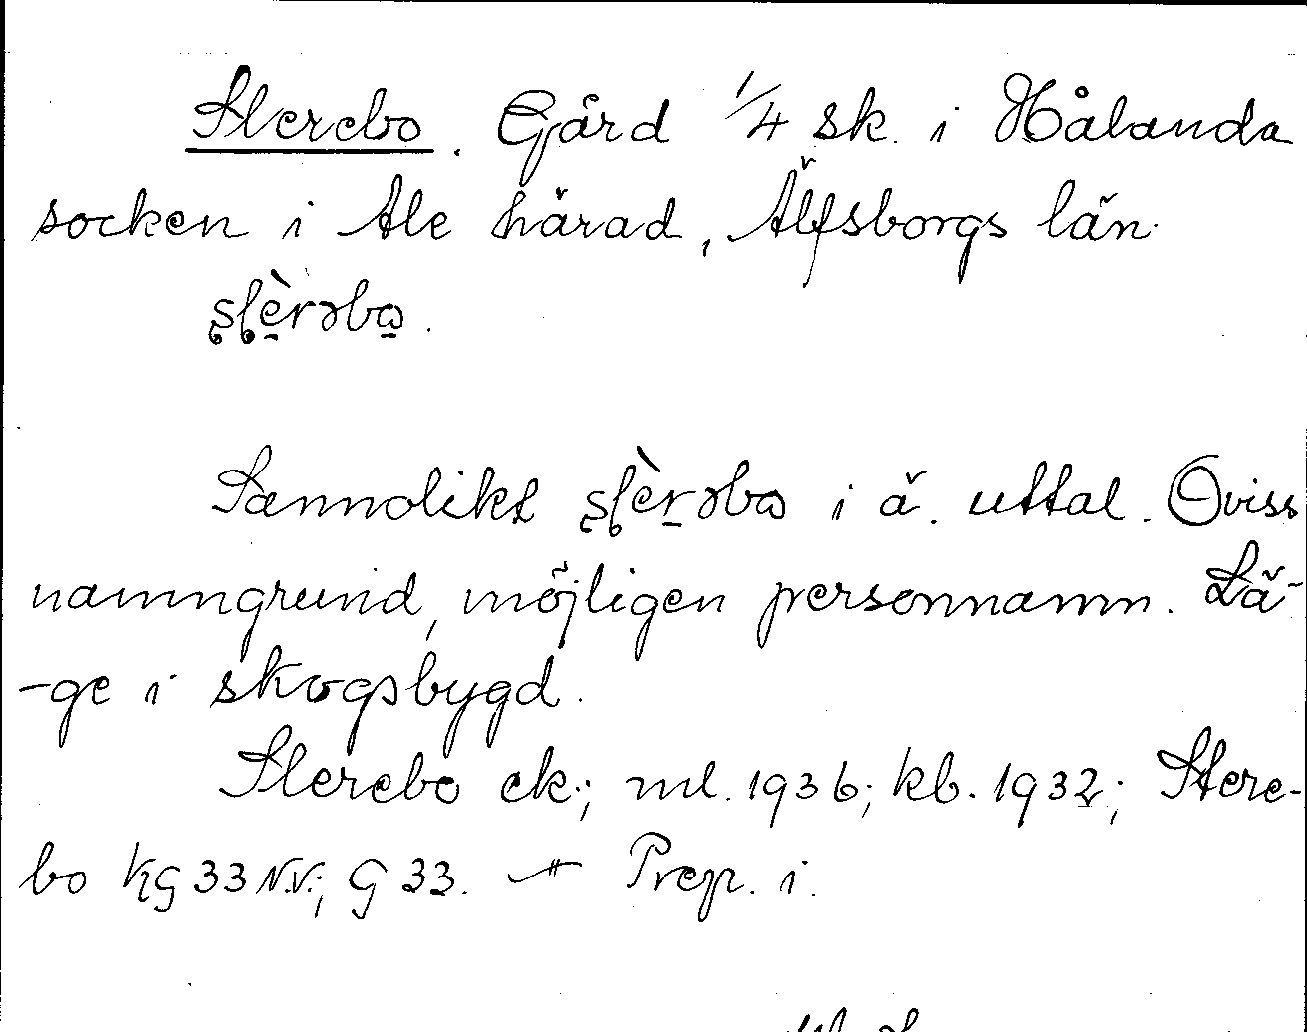 Slerebo. Gård 1/4 sk. i Hålanda
socken i Ale härad, Älfsborgs län.
Sannolikt i ä. uttal. Oviss
namngrund, möjligen personnamn. Lä-
-ge i skogsbygd.
Slerebo ek.; ml. 1936; kb. 1932; Slere-
bo KG 33 N.V.; G 33. — Prep. i.